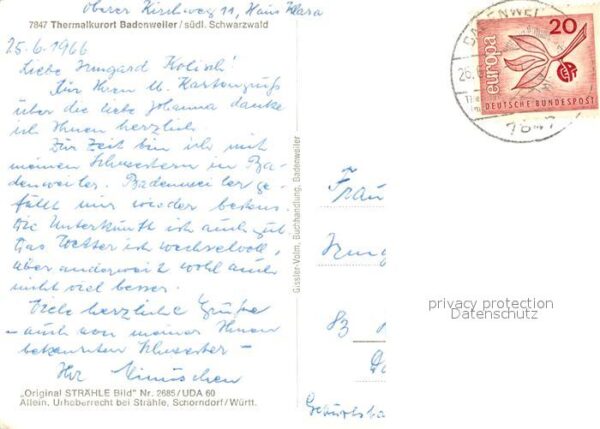 Oberer Kirchweg 11, Haus Klara
7847 Thermalkurort Badenweiler / südl. Schwarzwald
25.6.1966
Liebe Irmgard Kolisch!
Für Ihren Kartengruß
über die liebe Johanna danke
ich Ihnen herzlich.
Zur Zeit bin ich mit
meinen Schwestern in Ba-
denweiler. Badenweiler ge-
fällt mir wieder bestens.
Die Unterkunft ist auch gut.
Das Wetter ist wechselvoll,
aber anderweit wohl auch
nicht viel besser.
Viele herzliche Grüße
- auch von meiner Ihnen
bekannten Schwester -
Ihr
„Original STRÄHLE Bild" Nr. 2685/UDA 60
Allein. Urheberrecht bei Strähle, Schorndorf / Württ.
Gissler-Volm, Buchhandlung, Badenweiler
BADENWEI
20
europa
CEPT
DEUTSCHE BUNDESPOST
7847
Frau
privacy protection
Datenschutz